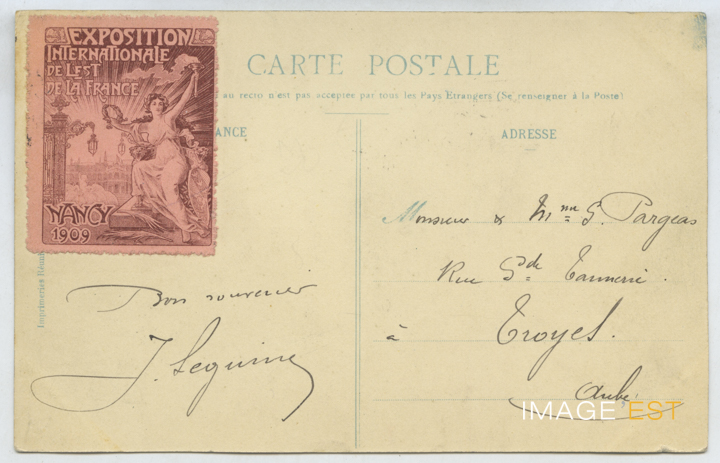 EXPOSITION
INTERNATIONALE
DE L'EST
DE LA FRANCE
NANCY
1909
CARTE POSTALE
au recto n'est pas acceptée par tous les Pays Etrangers (Se renseigner à la Poste)
ANCE
ADRESSE
Imprimeries Réun
Bon souvenir
J. Seguin
Monsieur & Mme G. Pargeas
Rue Gde Tannerie.
à Troyes.
Aube.
IMAGE EST